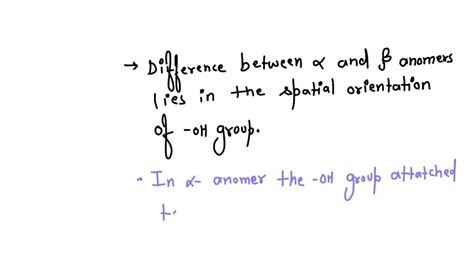 → Difference between α and β anomers
lies in the spatial orientation
of -OH group.
- In α- anomer the -OH group attatched
t